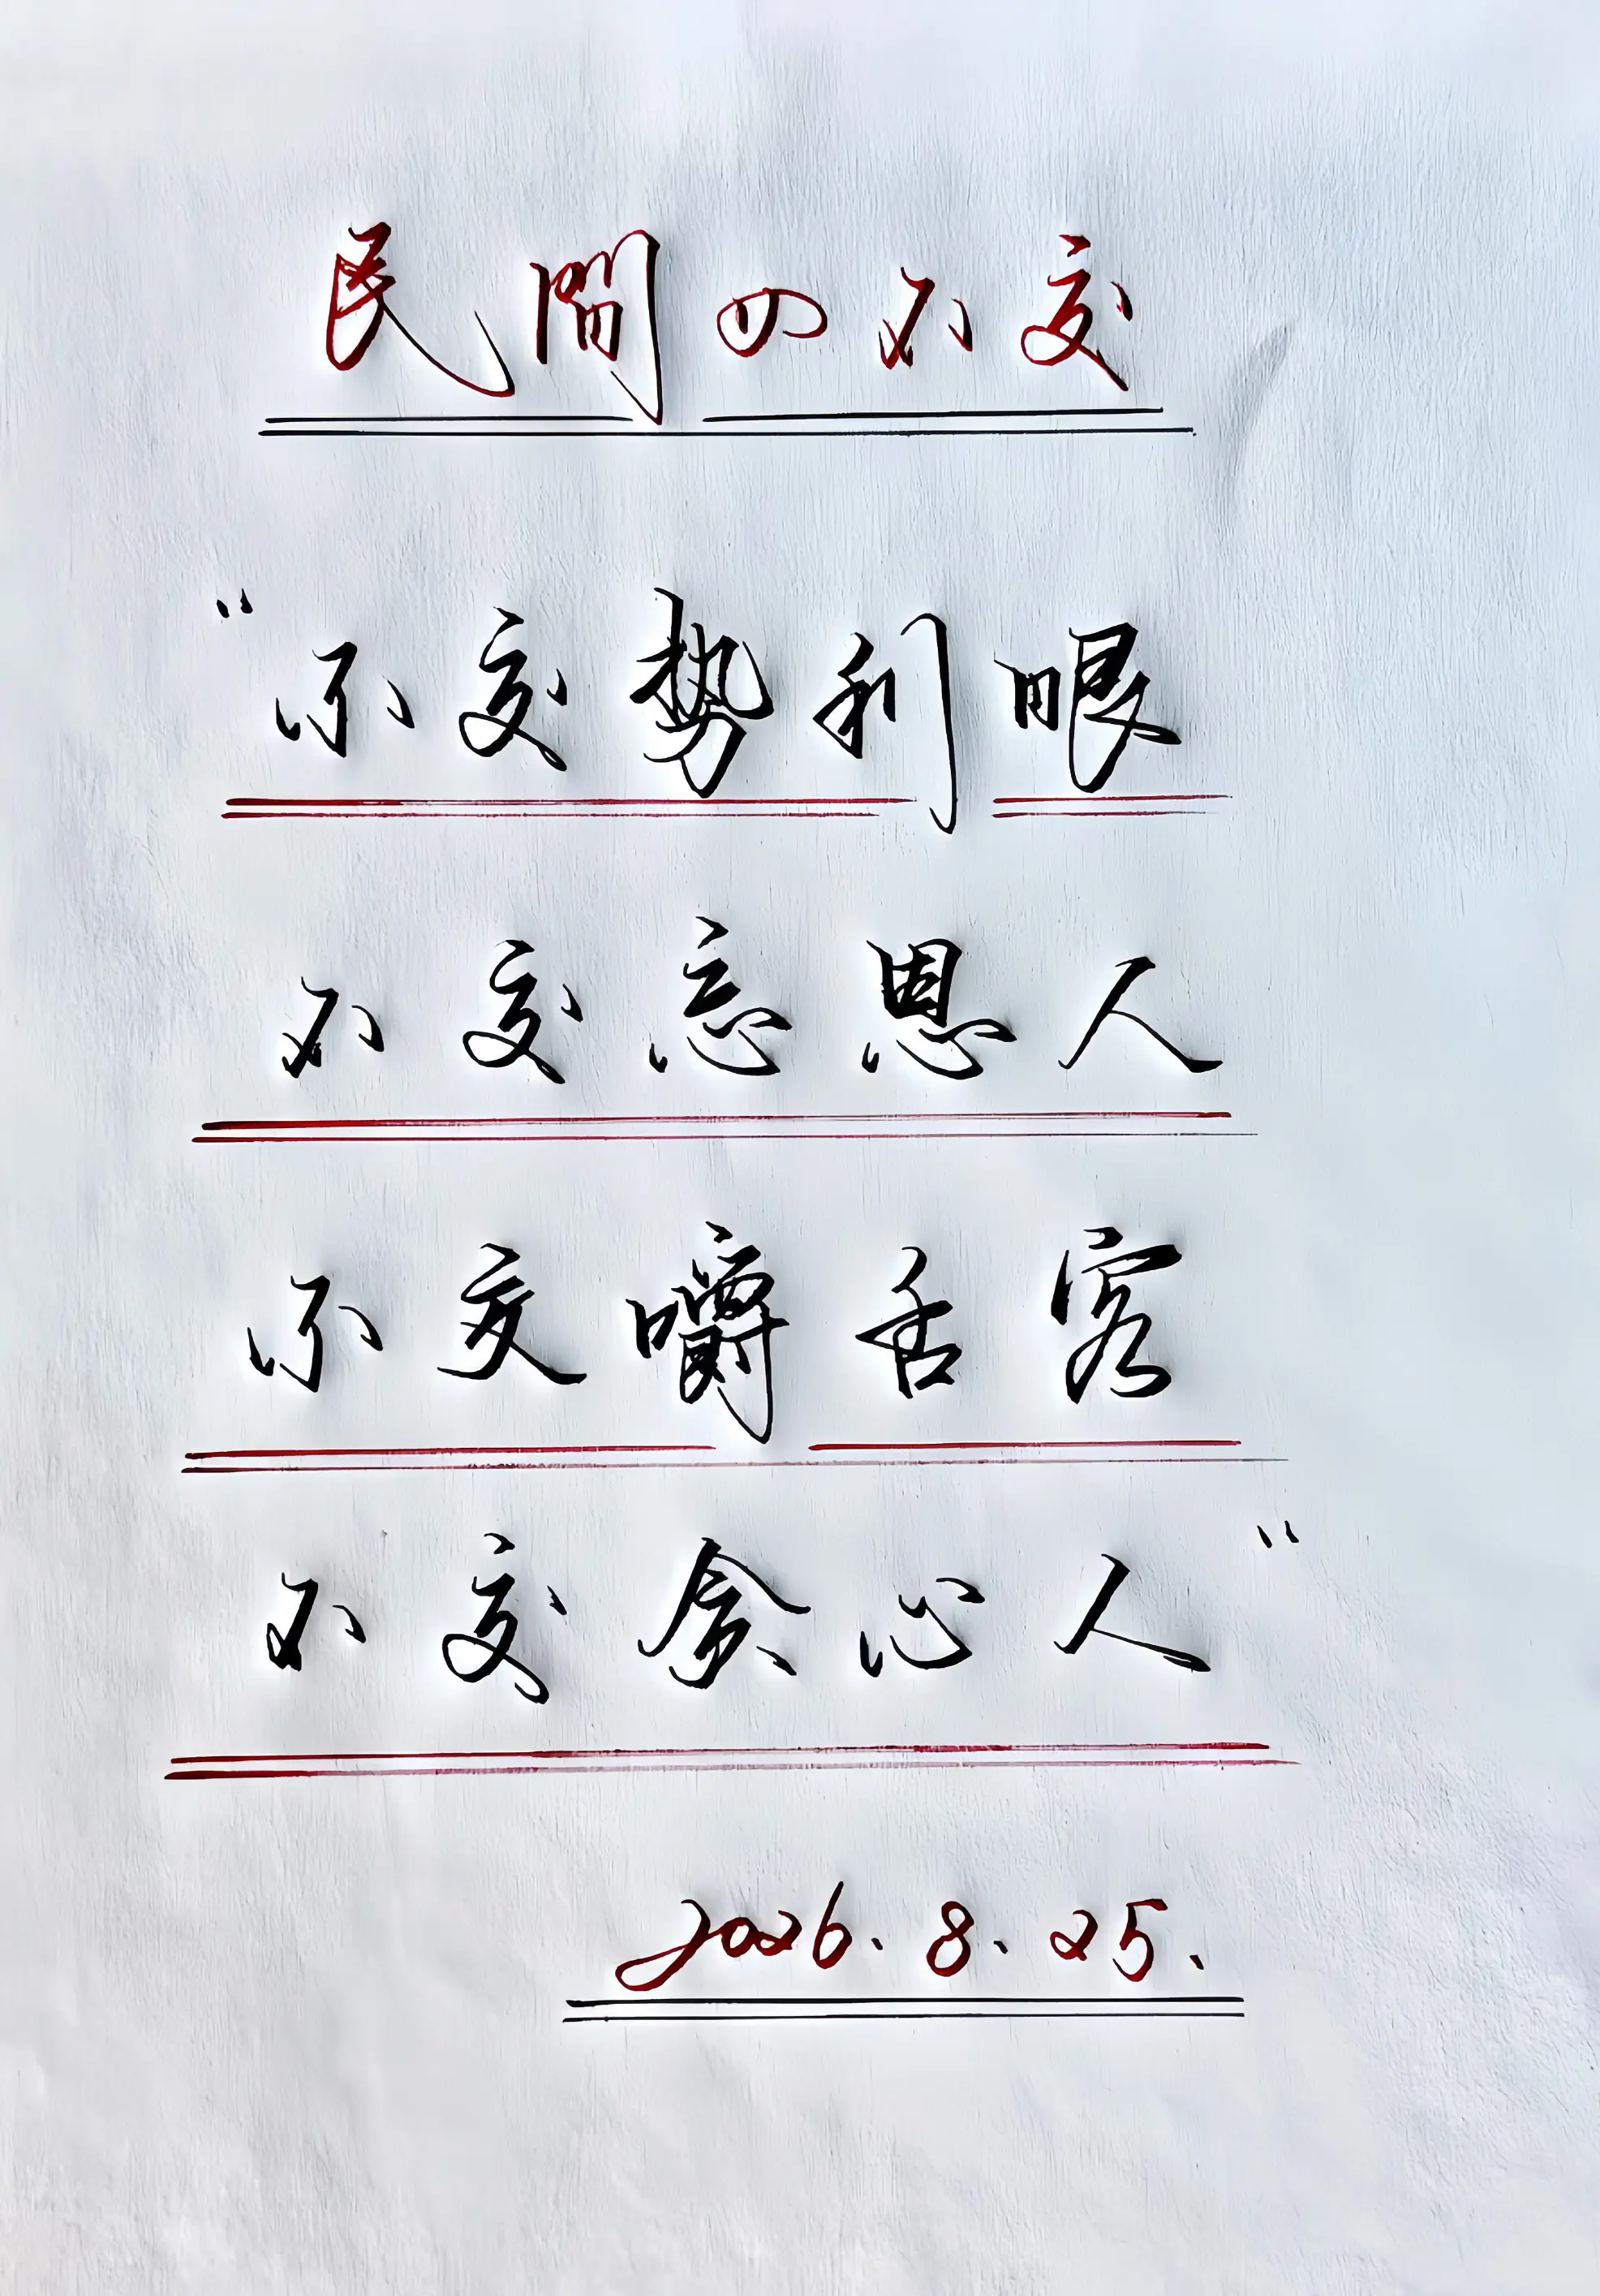 民間四不交
“不交势利眼
不交忘恩人
不交嚼舌客
不交贪心人”
2026.8.25.